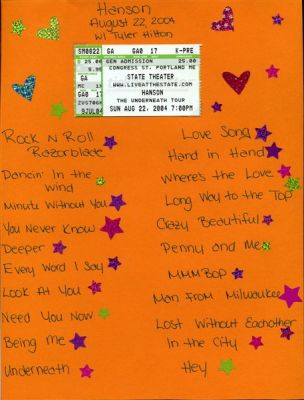 Hanson
August 22, 2004
w/ Tyler Hilton
SM0822 GA GA0 17 K-PRE
$ 25.00 GEN ADMISSION $ 25.00
CONGRESS ST. PORTLAND ME
GA STATE THEATER
WWW.LIVEATTHESTATE.COM
GA0 17 HANSON
THE UNDERNEATH TOUR
9JUL04 SUN AUG 22, 2004 7:00PM
Rock N Roll
Razorblade
Dancin' In the
Wind
Minute Without You
You Never Know
Deeper
Every Word I Say
Look At You
Need You Now
Being Me
Underneath
Love Song
Hand in Hand
Where's the Love
Long Way to the Top
Crazy Beautiful
Penny and Me
MMMBop
Man From Milwaukee
Lost Without Eachother
In the City
Hey